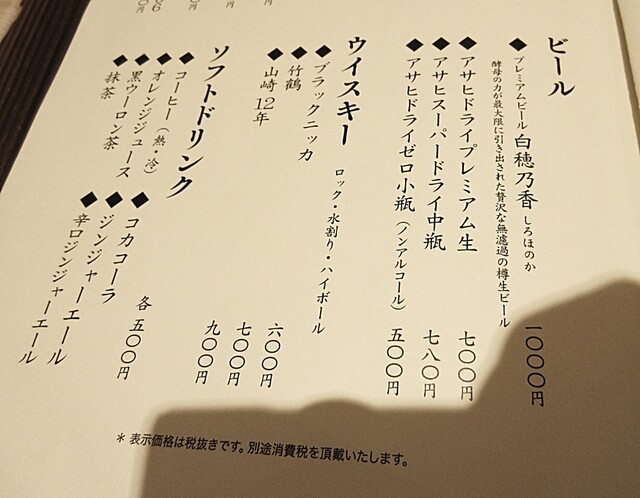 ビール
◆プレミアムビール 白穂乃香 しろほのか 一〇〇〇円
酵母の力が最大限に引き出された贅沢な無濾過の樽生ビール
◆アサヒドライプレミアム生 七〇〇円
◆アサヒスーパードライ中瓶 七八〇円
◆アサヒドライゼロ小瓶（ノンアルコール） 五〇〇円
ウイスキー ロック・水割り・ハイボール
◆ブラックニッカ 六〇〇円
◆竹鶴 七〇〇円
◆山崎12年 九〇〇円
ソフトドリンク 各五〇〇円
◆コーヒー（熱・冷）
◆オレンジジュース
◆黒ウーロン茶
◆抹茶
◆コカコーラ
◆ジンジャーエール
◆辛口ジンジャーエール
＊表示価格は税抜きです。別途消費税を頂戴いたします。